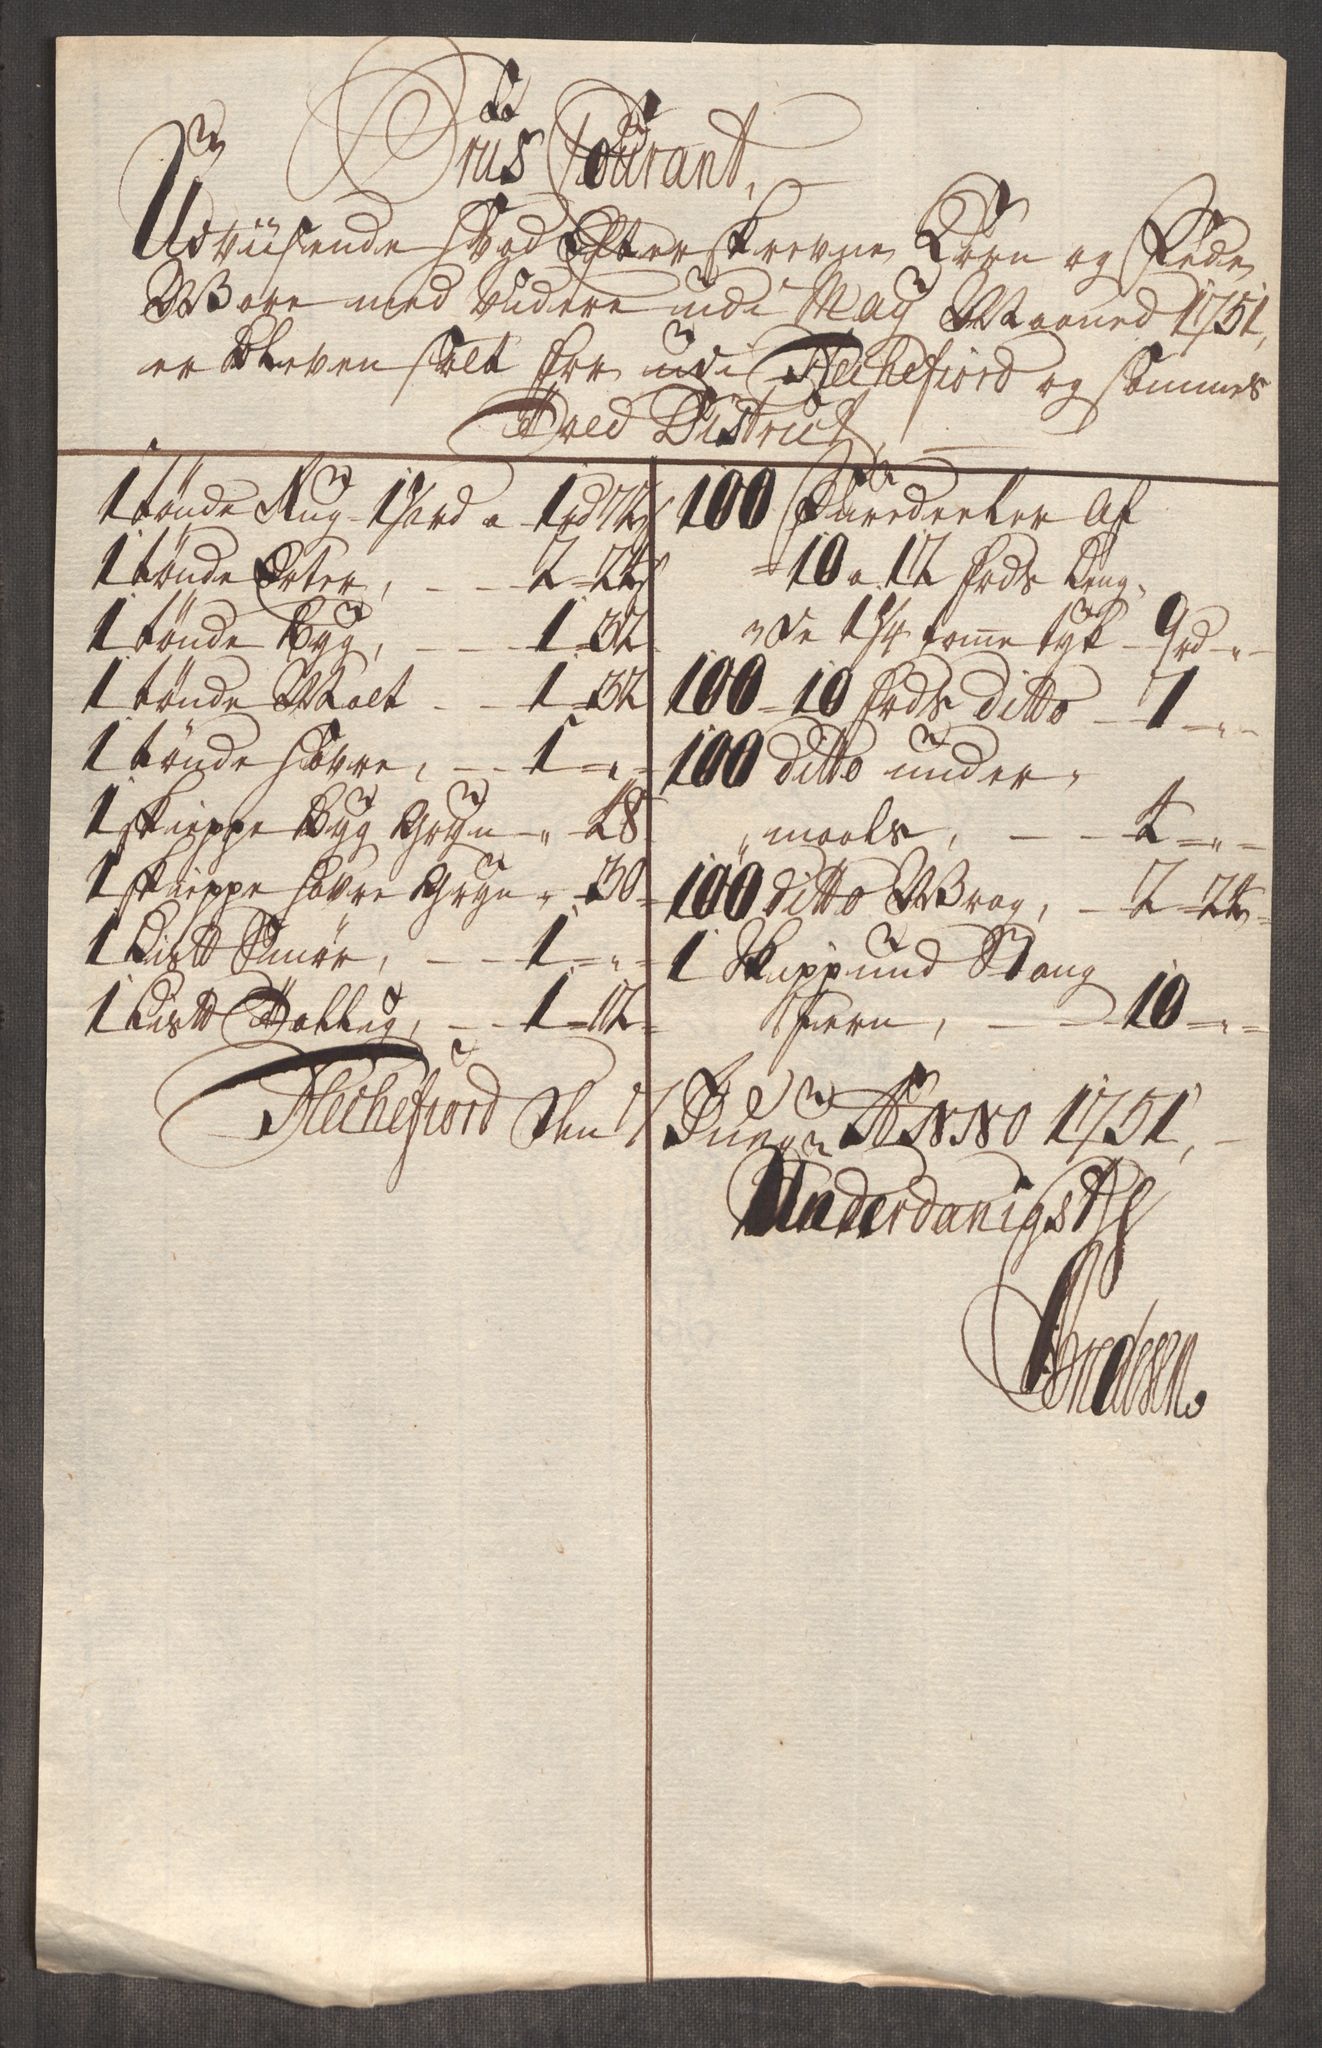 Priis Courant,
Udviisende hvad Efterskrevne Korn og Fede
Ware med videre udi May Maaned 1751,
er bleven solt for udi Flechefiord og sammes
Told District,
1 tønde Rug 1½ rd a 1 rd 72 s
1 tønde Erter, - - 2 = 24 s
1 tønde Byg, - - 1 = 32
1 tønde Malt - - 1 = 32
1 tønde Havre, - - 1 = " =
1 skieppe Byg Gryn - " 48
1 skieppe Havre Gryn " = 30
1 Lis tt Smør, - - 1 = " =
1 Lis tt Tallig, - - 1 = 12 =
100 Furedeeler af
10 a 12 fods Leng-
de 1¼ tome tyk - 9 rd - " -
100 - 10 fods ditto - 7 = " -
100 ditto under-
maals, - - = " =
100 ditto Wrag, - 2 = 24 =
1 Skippund Stang
Jern, - - 10 = " =
Flechefiord den Juny Anno 1751, -
Underdanigst